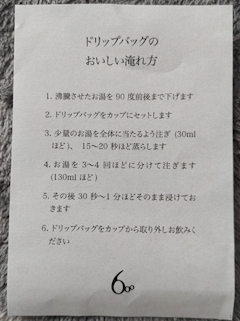 ドリップバッグの
おいしい淹れ方
1. 沸騰させたお湯を 90 度前後まで下げます
2. ドリップバッグをカップにセットします
3. 少量のお湯を全体に当たるよう注ぎ (30ml
ほど)、 15〜20 秒ほど蒸らします
4. お湯を 3〜4 回ほどに分けて注ぎます
(130ml ほど)
5. その後 30 秒〜1 分ほどそのまま浸けてお
きます
6. ドリップバッグをカップから取り外しお飲みく
ださい